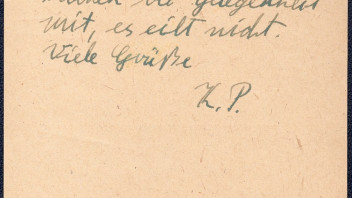 bei Gelegenheit
mit, es eilt nicht.
Viele Grüße
K. P.